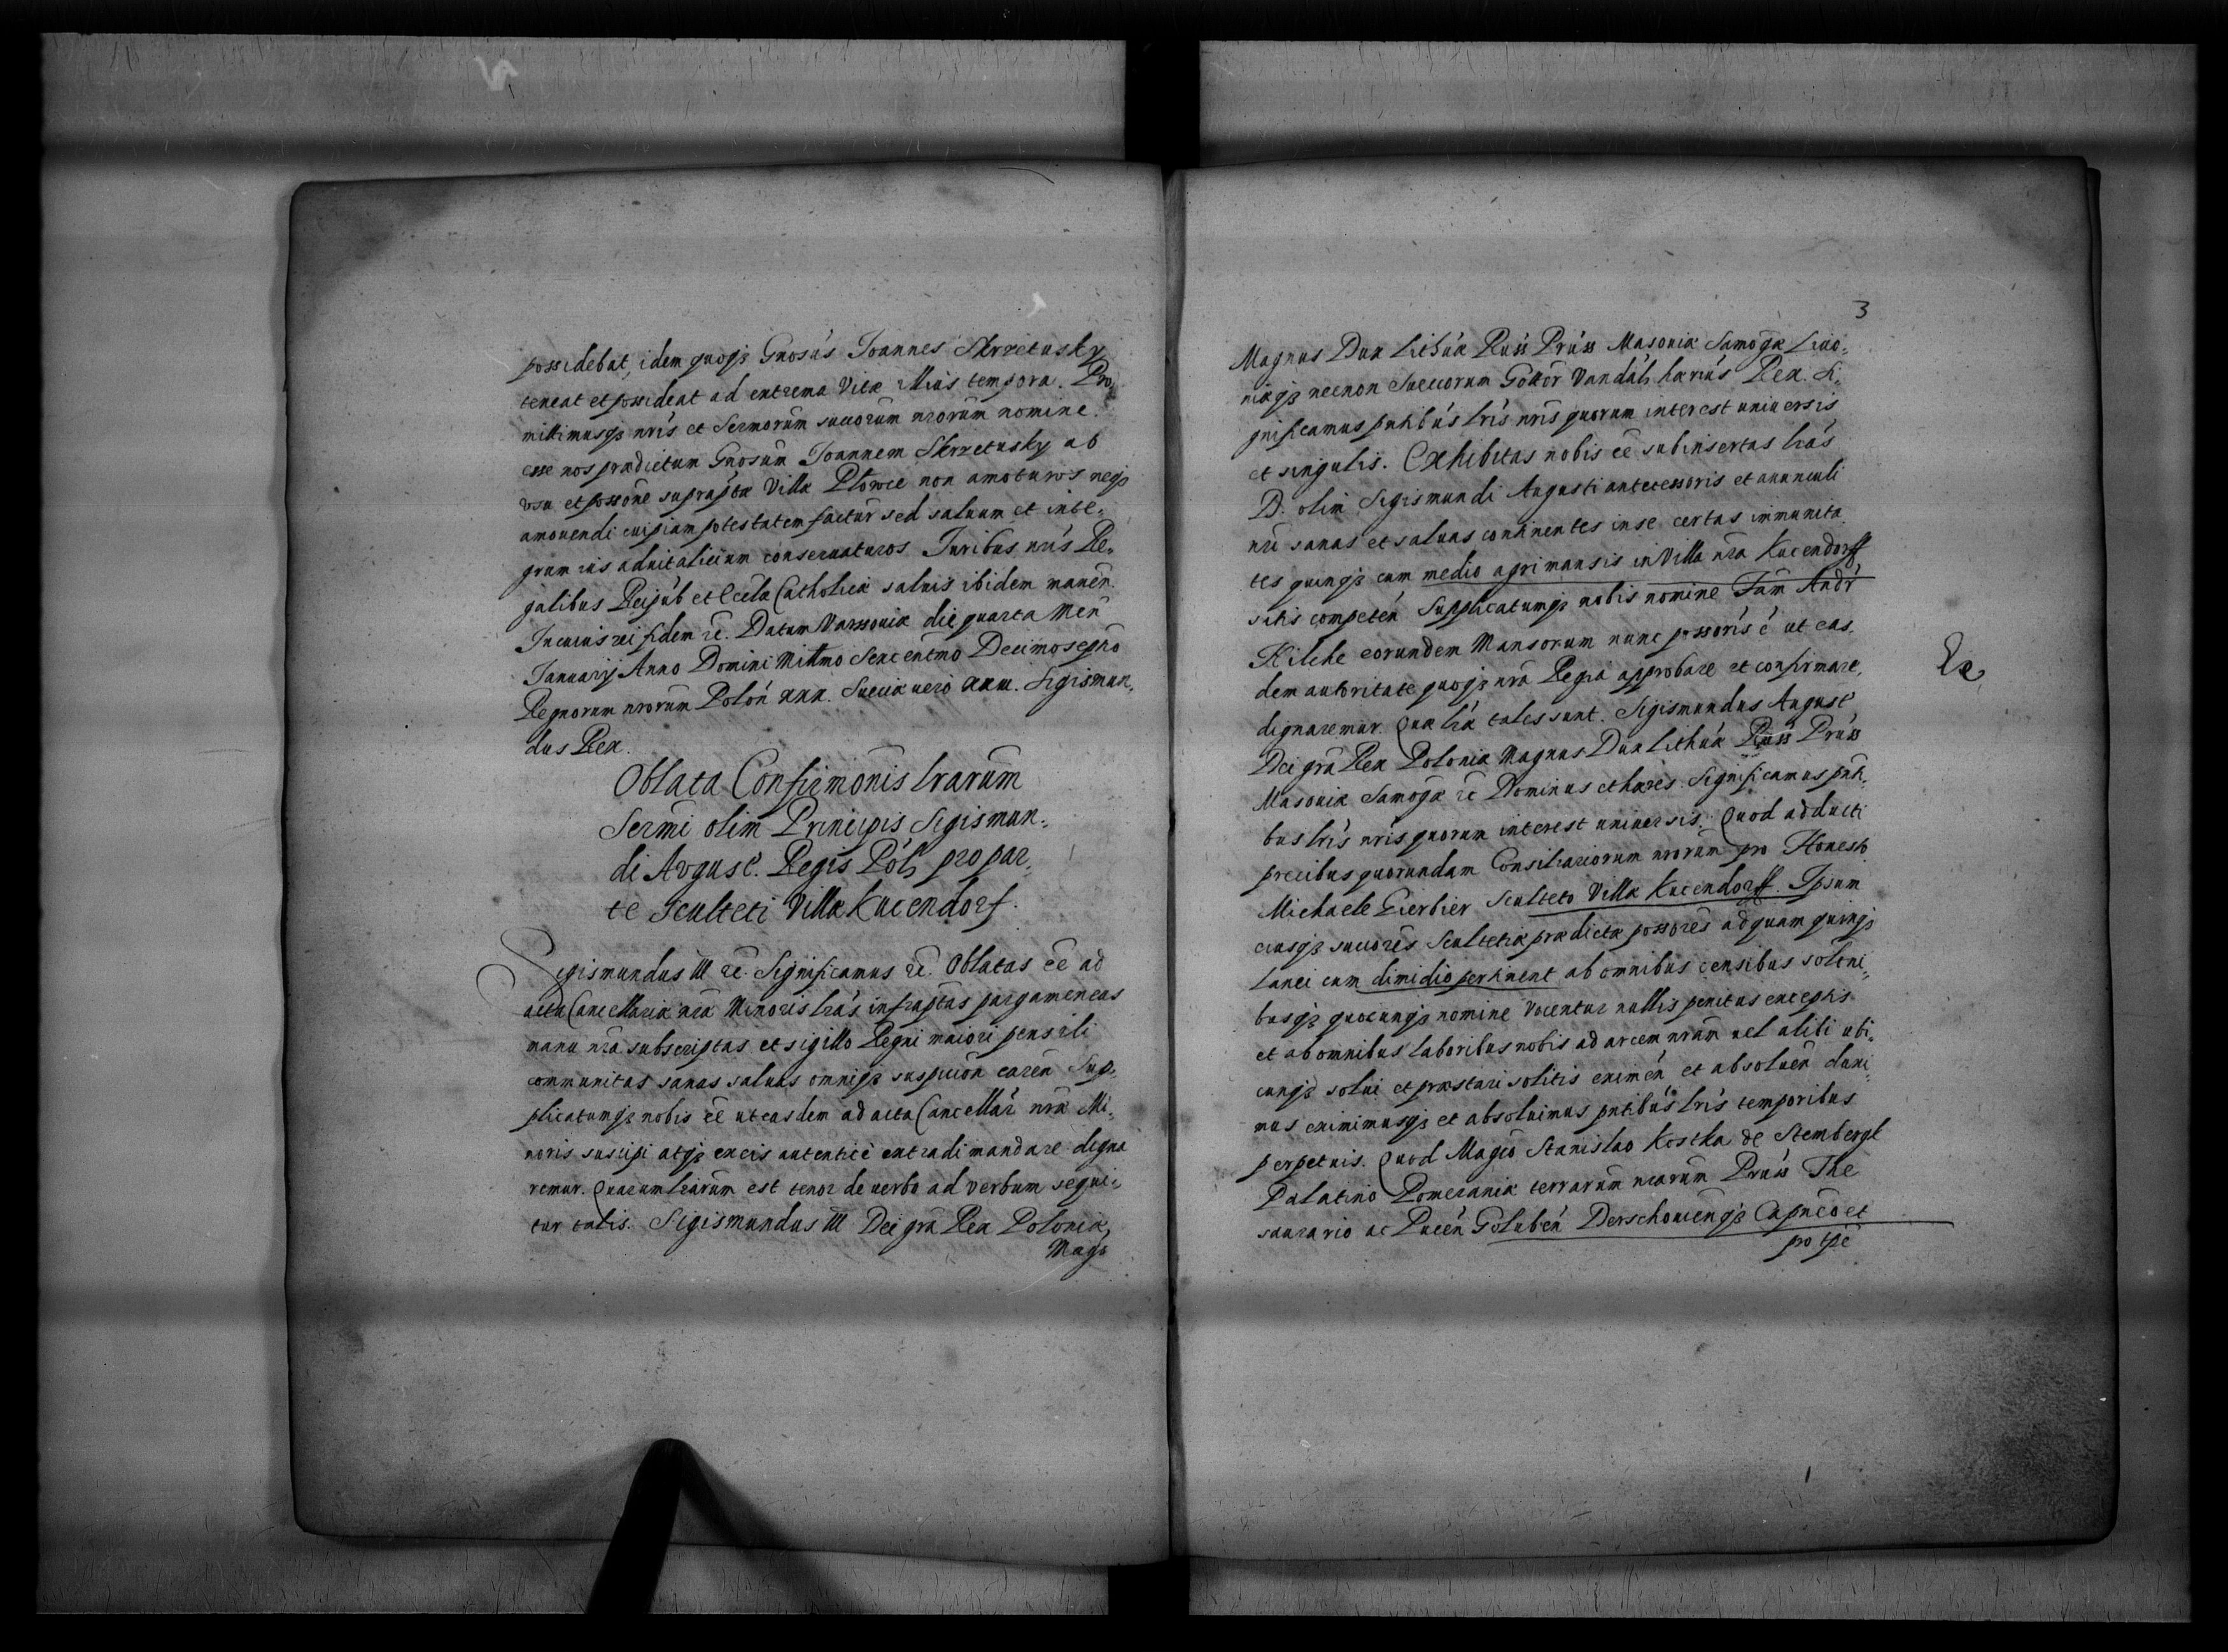 possidebat, idem quoqȝ Gnosús Joannes Skrzetusky
teneat et possideat ad extrema Vitæ illiús tempora. Pro„
mittimusqȝ nrís et Sermorūm succorūm nrorūm nomine.
esse nos prædictum Gnosūm Joannem Skrzetusky ab
vsu et possōne suprapta Villæ Plowce non amoturos neqȝ
amouendi cuipiam potestatem factur̄ sed saluum et inte„
grum ius aduitalitium conseruaturos. Juribus nrís Re„
galibus Reipúb et Ecclæ Catholicæ saluis ibidem manen̄.
In cuius rei fidem rē. Datum Varssouiæ die quarta Men̄
Januarij Anno Domini Millmo Sexcentmō Decimo septmō
Regnorum nrorūm Polon̄ xxx. Sueciæ uero xxiii. Sigismun„
dus Rex.
Oblata Confirmōnis lrarūm
Sermi olim Principis Sigismun„
di Avgust̄. Regis Pol̄ pro par„
te Sculteti Villæ Kucendorf.
Sigismundus III rē. Significamus rē. Oblatas ēē ad
acta Cancellariæ nræ Minoris lrás infraptas pargameneas
manu nra subscriptas et sigillo Regni maiori pensili
communitas sanas saluas omniqȝ suspicion̄ caren̄ Sup„
plicatumqȝ nobis ēē ut easdem ad acta Cancellar̄ nræ Mi„
noris suscipi atqȝ ex eis autenticē extradi mandare digna
remur. Quarum lrarūm est tenor de uerbo ad verbum sequi„
tur talis. Sigismundus III Dei grā Rex Poloniæ,
Magȝ
3
Magnus Dux Lithúæ Rúss Prúss Masouiæ Samog̃æ Liuo„
niæqȝ necnon Sueuorum Gottor̄ Vandal̄ hæriús Rex. Si„
gnificamus pntibús lrís nrís quorum interest uniuersis
et singulis. Exhibitas nobis ēē subinsertas lrás
D. olim Sigismundi Augusti antecessoris et auunculi
nri sanas et saluas continentes in se certas immunita
tes quinqȝ cum medio agri mansis in Villa nra Kucendorff
sitis competen̄ Supplicatumqȝ nobis nomine Fam̄ Andr̄
Kilche eorundem Mansorum nunc possorís ē ut eas„
dem autoritate quoqȝ nrā Regia approbare et confirmare,
dignaremur. Quæ lræ tales sunt. Sigismundus August̄
Dei grā Rex Poloniæ Magnus Dux Lithúæ Rúss Prúss
Masouiæ Samog̃æ rē Dominus et hæres. Significamus pnti„
bus lrís nrís quorum interest uniuersis. Quod adducti
precibus quorundam Consiliariorum nrorūm pro Honesto
Michaele Gierbier Sculteto Villæ Kucendorff. Ipsum
eiusqȝ succorēs Scultetiæ prædictæ possorēs ad quam quinqȝ
Lanei cum dimidio pertinent ab omnibus censibus solēni„
busqȝ quocunqȝ nomine Vocentur nullis penitus exceptis
et ab omnibus laboribus nobis ad arcem nrām uel alibi ubi„
cunqȝ solui et præstari solitis eximen̄ et absoluen̄ duxi„
mus eximimusqȝ et absoluimus pntibús lrís temporibus
perpetuis. Quod Magcō Stanislao Kostka de Stembergk
Palatino Pomeraniæ terrarūm nrarūm Prúss The
saurario ac Pucen̄ Goluben̄ Derschouien̄qȝ Capneō et
pro tpē